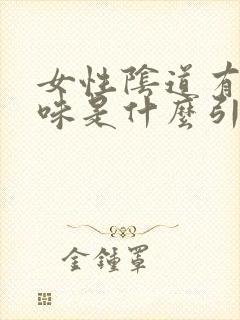 女性陰道有
味是什麼引
金鍾罩